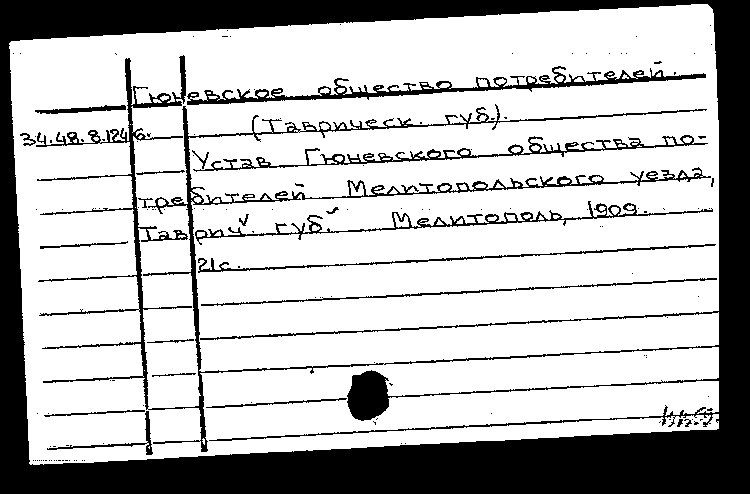 Гюневское общество потребителей.
(Таврическ. губ.).
34.48.8.1246.
Устав Гюневского общества по-
требителей Мелитопольского уезда,
Таврич. губ. Мелитополь, 1909.
21с.